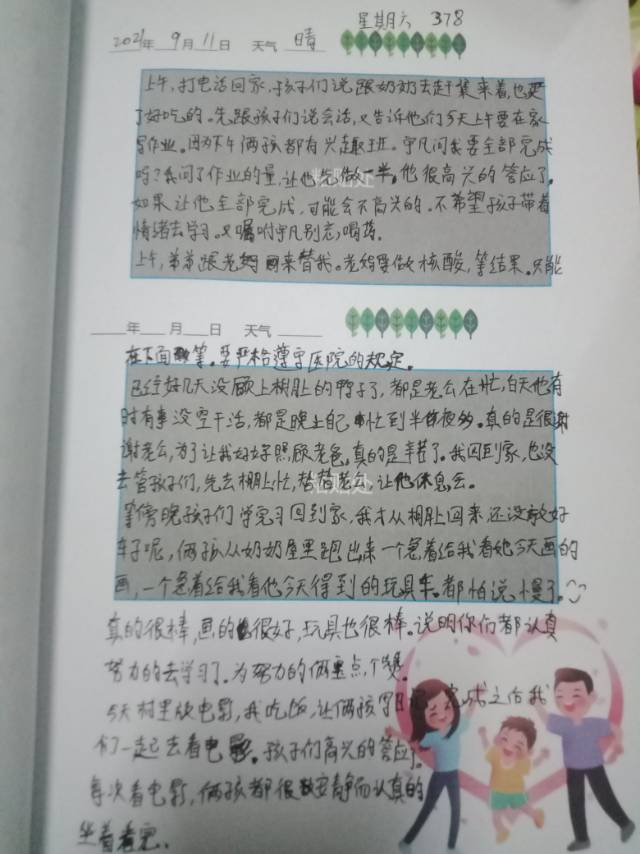 星期六 378
2021年 9月 11日 天气 晴
上午，打电话回家，孩子们说跟奶奶去赶集来着，也买
了好吃的。先跟孩子们说会话，又告诉他们今天上午要在家
写作业。因为下午俩孩都有兴趣班。宇凡问我要全部完成
吗？我问了作业的量，让他先做一半。他很高兴的答应了。
如果让他全部完成，可能会不高兴的。不希望孩子带着
情绪去学习。又嘱咐宇凡别忘喝药。
上午，弟弟跟老妈回来替我。老妈要做核酸，等结果。只能
年 月 日 天气
在下面等。要严格遵守医院的规定。
已经好几天没顾上棚上的鸭子了，都是老公在忙，白天他有
时有事没空干活，都是晚上自己忙到半夜。真的是很谢
谢老公，为了让我好好照顾老爸，真的是辛苦了。我回到家，也没
去管孩子们，先去棚上忙，替替老公，让他休息会。
等傍晚孩子们学完习回到家，我才从棚上回来，还没放好
车子呢，俩孩从奶奶屋里跑出来一个急着给我看她今天画的
画，一个急着给我看他今天得到的玩具车。都怕说慢了。
真的很棒，画的很好，玩具也很棒。说明你们都认真
努力的去学习了。为努力的俩宝点个赞。
今天村里放电影，我吃饭，让俩孩写日记，完成之后我
们一起去看电影。孩子们高兴的答应。
每次看电影，俩孩都很安静而认真的
坐着看完。